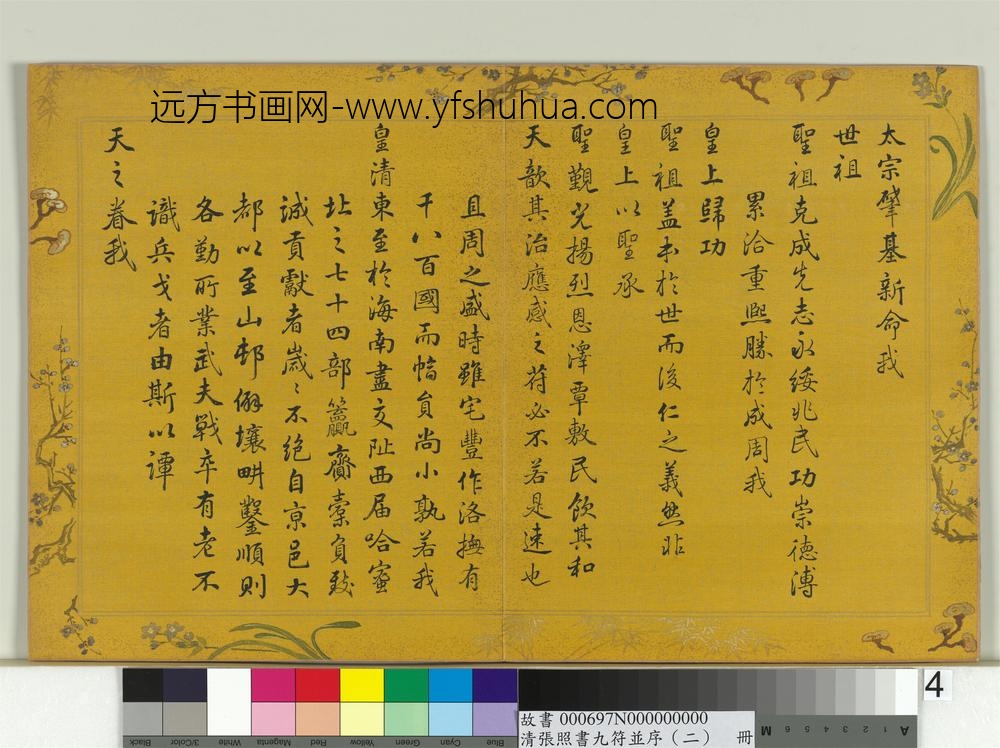 远方书画网-www.yfshuhua.com
太宗肇基新命我
世祖
聖祖克成先志永綏兆民功崇德溥
累洽重熙勝於成周我
皇上歸功
聖祖盖本於世而後仁之義然非
皇上以聖承
聖覲光揚烈恩澤覃敷民飲其和
天歆其治應感之符必不若是速也
且周之盛時雖宅豐作洛撫有
千八百國而幅員尚小孰若我
皇清東至於海南盡交阯西屆哈蜜
北之七十四部籯齎橐負致
誠貢獻者嵗〻不絶自京邑大
都以至山邨僻壤畊鑿順則
各勤所業武夫戰卒有老不
識兵戈者由斯以譚
天之眷我
4
故書 000697N000000000
清張照書九符並序（二） 冊
Black
3/Color
White
Magenta
Red
Yellow
Green
Cyan
Blue
A 1 2 3 4 5 6 M